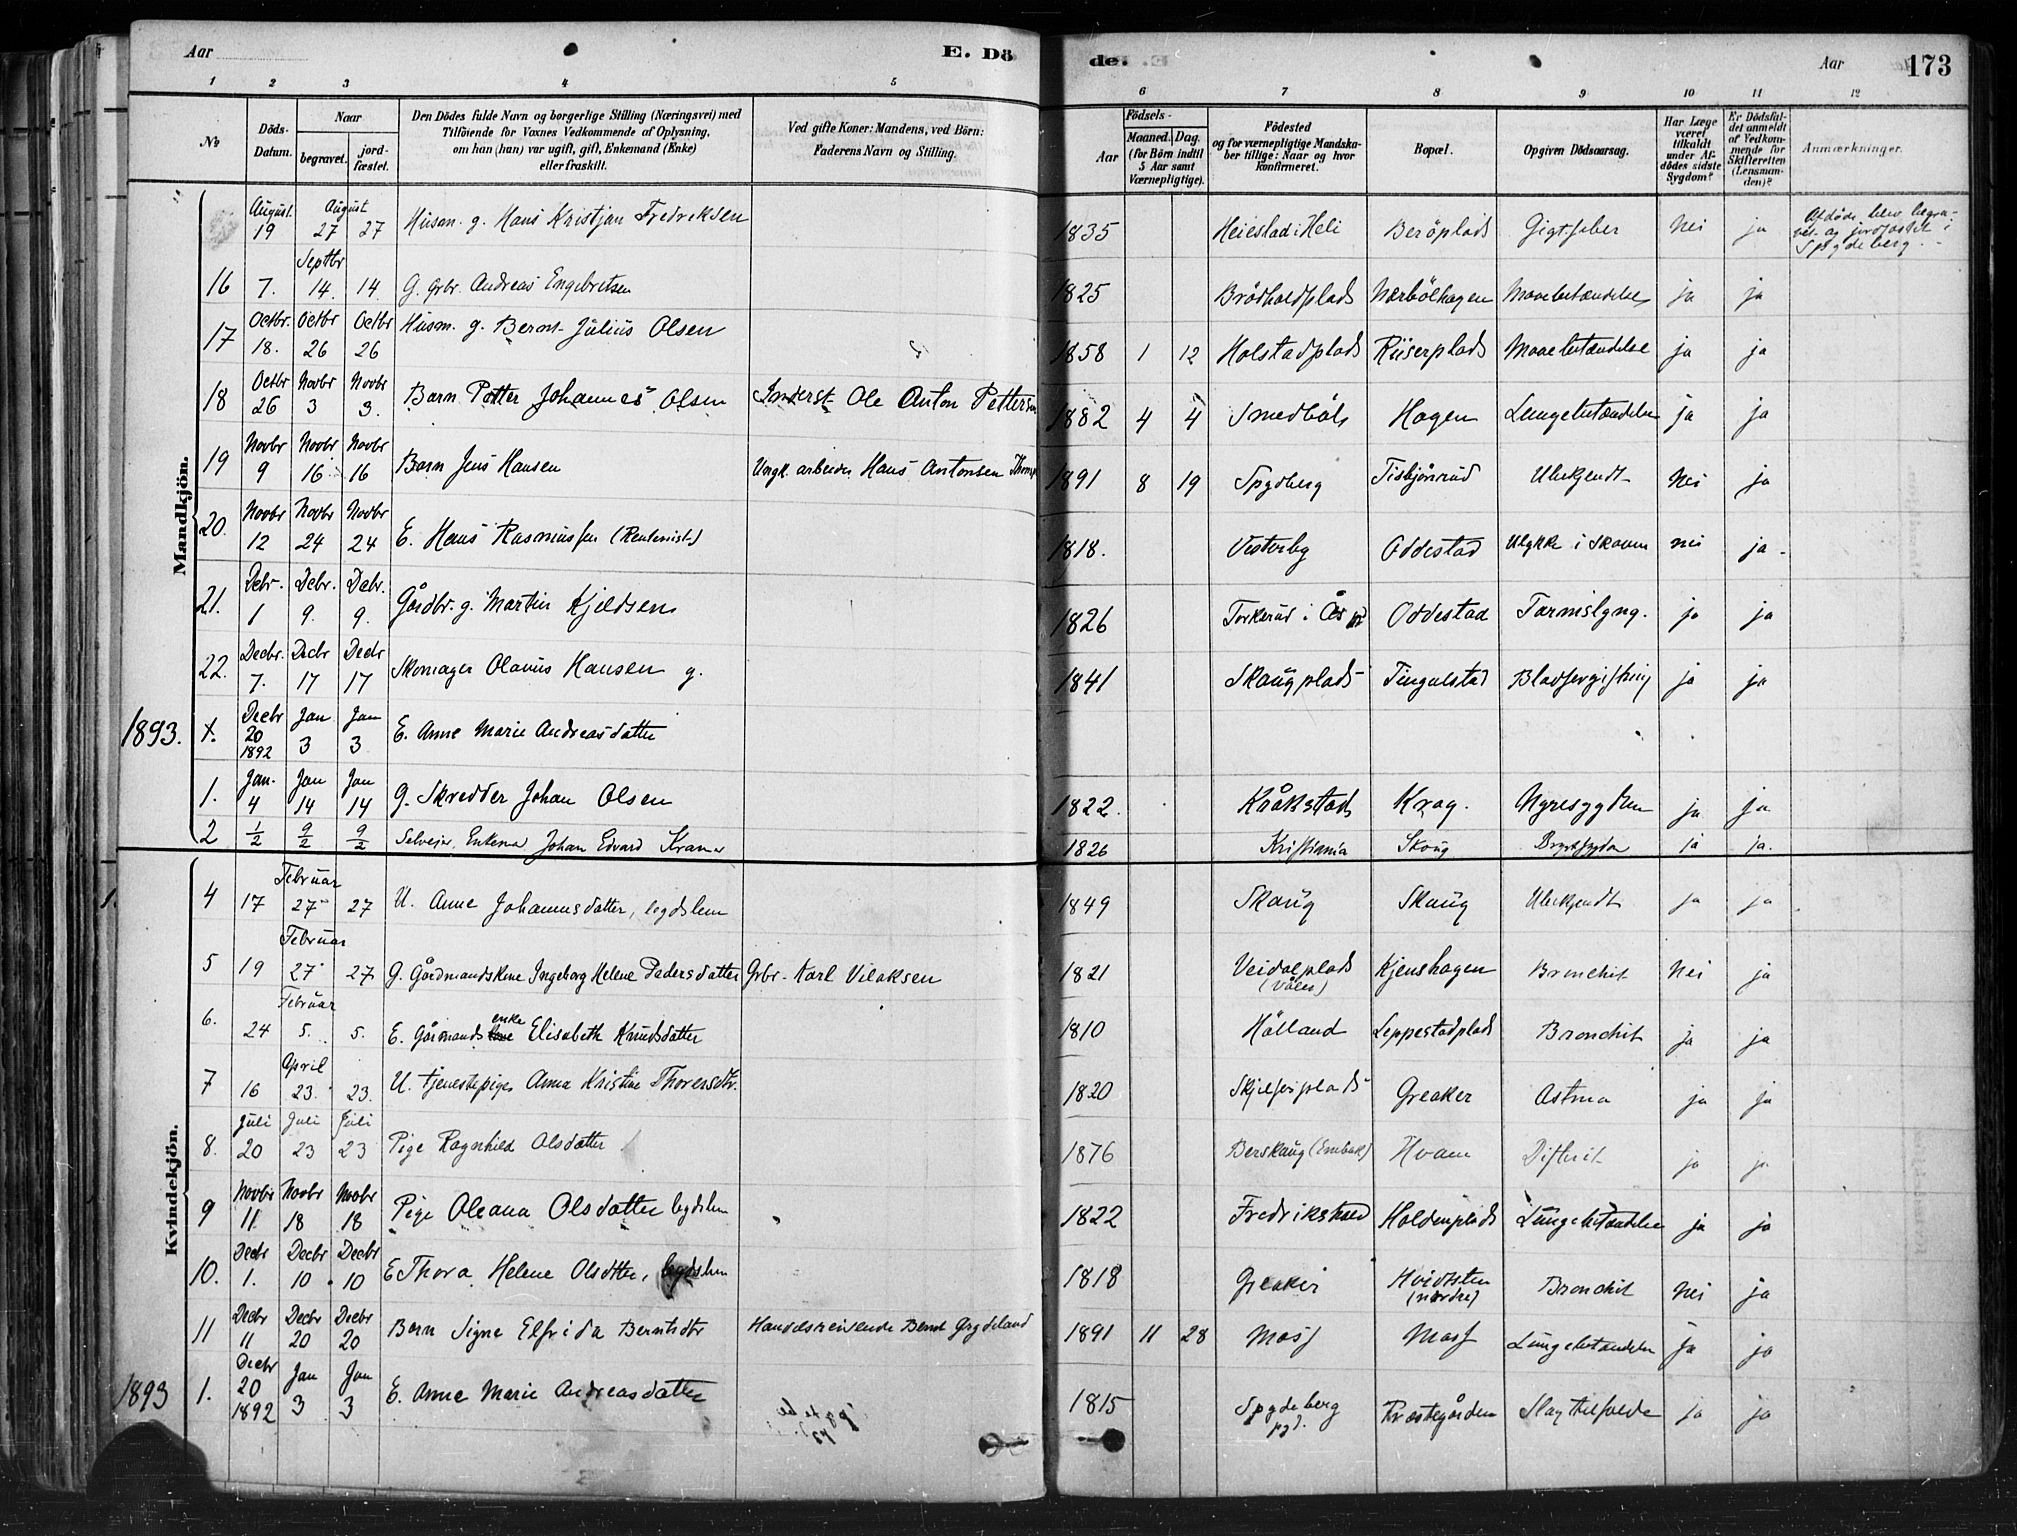 Aar
E. Dö
de.
Aar
173
1 2 3 4 5 6 7 8 9 10 11 12
No
Döds-Datum.
Naar
begravet.
jord-fæstet.
Den Dödes fulde Navn og borgerlige Stilling (Næringsvei) med
Tilföiende for Voxnes Vedkommende af Oplysning,
om han (hun) var ugift, gift, Enkemand (Enke)
eller fraskilt.
Ved gifte Koner: Mandens, ved Börn:
Faderens Navn og Stilling.
Födsels-
Aar
Maaned. Dag.
(for Börn indtil
5 Aar samt
Værnepligtige).
Födested
og for værnepligtige Mandska-
ber tillige: Naar og hvor
konfirmeret.
Bopæl.
Opgiven Dödsaarsag.
Har Læge
været
tilkaldt
under Af-
dödes sidste
Sygdom?
Er Dödsfal-
det anmeldt
af Vedkom-
mende for
Skifteretten
(Lensman-
den)?
Anmærkninger.
Mandkjön.
August 19 August 27 27 Husm. g. Hans Kristjan Fredreksen 1835 Heiestad i Heli Beröplads Gigtfeber nei ja Afdöde blev begra-
vet og jordfæstet i
Spydeberg.
16 7. Septbr 14. 14. G. grbr. Andreas Engebretsen 1825 Nærbölhagen Mavebetændelse ja ja
17 Octbr. 18. Octbr 26 Octbr 26 Husm. g. Bernt Julius Olsen 1858 1 12 Holstadplads Riiserplads Mavebetændelse ja ja
18 Octbr 26 Novbr 3 Novbr 3. Barn Petter Johannes Olsen Inderst Ole Anton Pettersen 1882 4 4 Smedböls Hagen Lungebetændelse ja ja
19 Novbr 9 Novbr 16 Novbr 16 Barn Jens Hansen arbeider Hans Antonsen 1891 8 19 Spydberg Tisbjönrud Ubekjendt nei ja
20. Novbr 12 Novbr 24 Novbr 24 E. Hans Rasmussen (Rentenist) 1818. Vesterby Oddestad Ulykke i Skoven nei ja
21. Debr. 1 Debr. 9. Debr. 9. Gårdbr. g. Martin Kjeldsen 1826 Torkerud i Ås Oddestad Tarmslyng. ja ja
22. Decbr. 7. Decbr 17 Decbr 17 Skomager Olavus Hansen g. 1841 Skaugplads Tingulstad Blodforgiftning ja ja
1893. X. Decbr 20 1892 Jan 3 Jan 3 E. Anne Marie Andreasdatter
1. Jan. 4 Jan 14 Jan 14 G. Skredder Johan Olsen 1822. Kråkstad Krog. Nyresygdom ja ja
2 1/2 9/2 9/2 Selveier Enkema Johan Edvard Kramer 1826 Kristiania Skoug Brystsygdom ja ja.
Kvindekjön.
4 17 Februar 27 27 U. Anne Johannesdatter, legdslem 1849 Skaug Skaug Ubekjendt ja ja
5 19 Februar 27 27 G. Gårdmandskone Ingeborg Helene Pedersdatter Grbr. Karl Vilaksen 1821 Veidalplads
(Våler) Kjenshagen Bronchit nei ja
6. 24 Februar 5. 5. E. Gårmands enke Elisabeth Knudsdatter 1810 Hölland Leppestadplads Bronchit ja ja
7 16 April 23. 23. U. tjenestepige Anna Kristine Thorersdtr. 1820 Greaker Astma ja ja
8. Juli 20 Juli 23 Juli 23 Pige Ragnhild Olsdatter 1876 Berskaug Hvam Difterit ja ja
9 Novbr 11 Novbr 18 Novbr 18 Pige Oleana Olsdatter legdslem 1822 Fredrikshald Holdenplads Lungebetændelse ja ja
10. Decbr 1. Decbr 10 Decbr 10 E Thora Helene Olsdtter, legdslem 1818 Greaker Hvidsten
(nordre) Bronchit nei ja
11 Decbr 11 Decbr 20 Decbr 20 Barn Signe Elfrida Berntsdtr Handelsreisende Bernt Grydeland 1891 11 28 Moss Moss Lungebetændelse ja ja
1893 1. Decbr 20 1892 Jan 3 Jan 3 E. Anne Marie Andreasdatter 1815 Spydeberg
pgd. Præstegården Slagtilfelde ja ja